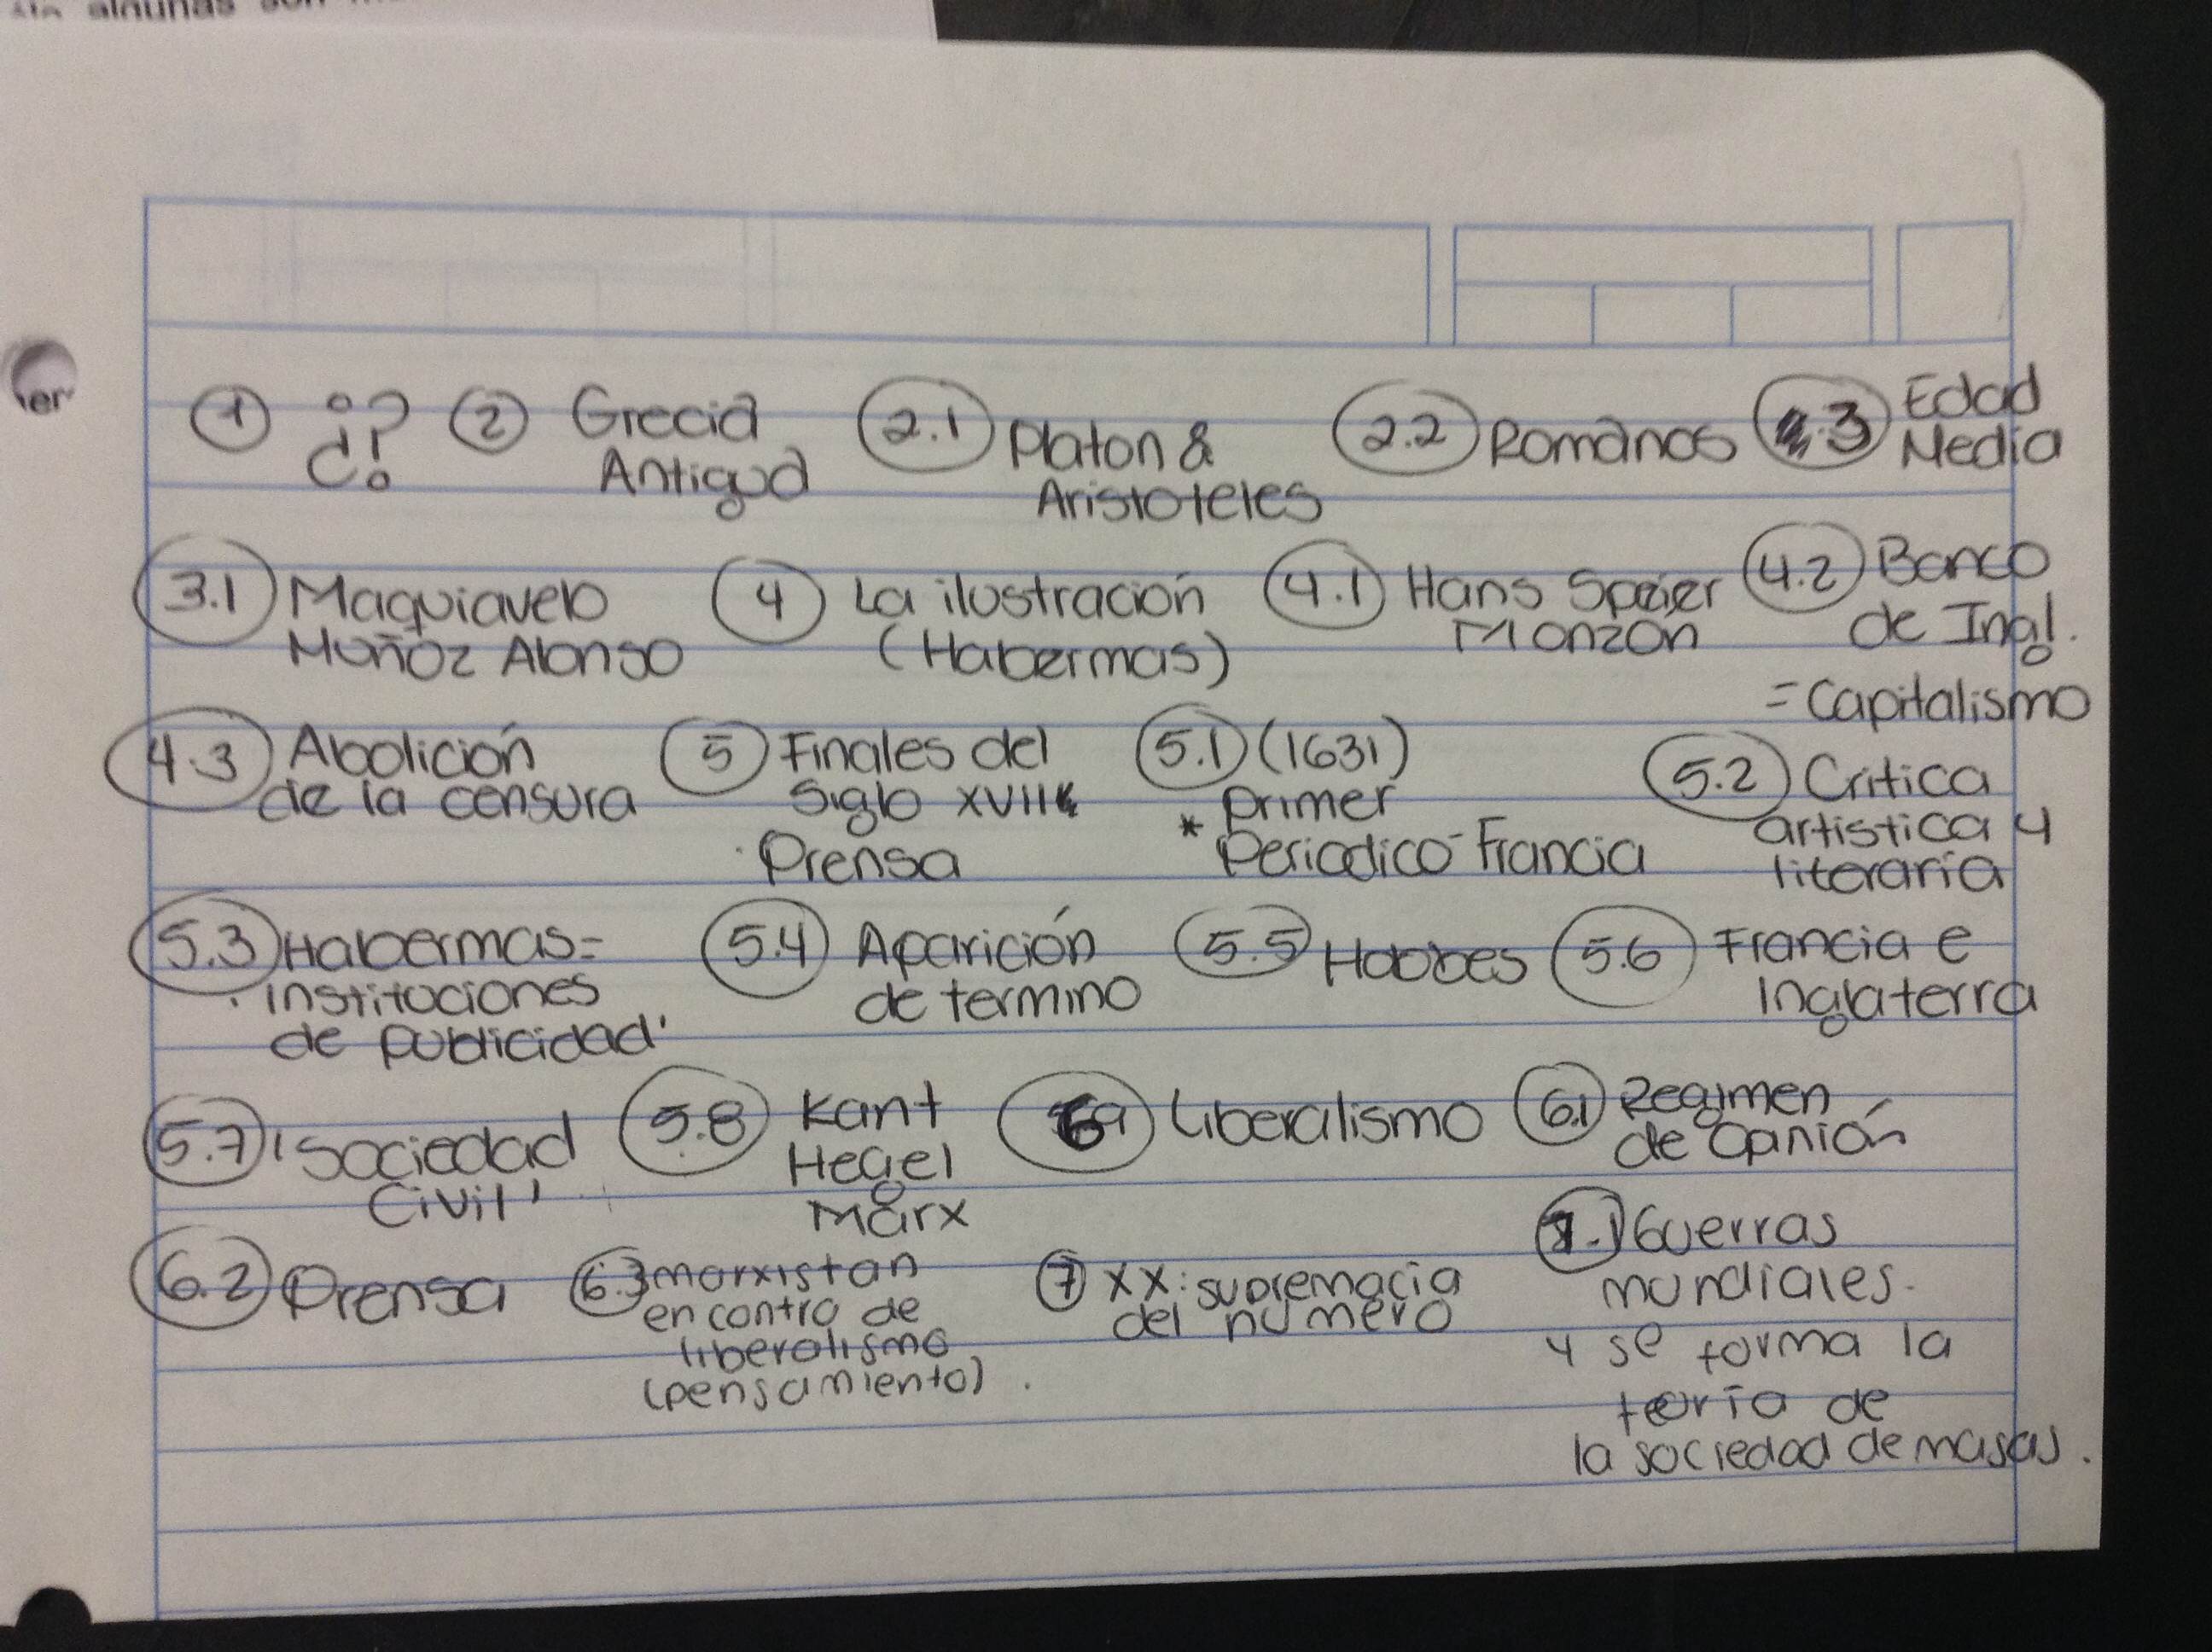 algunas son
er
① ¿? ② Grecia Antigua
2.1 Platon & Aristoteles
2.2 Romanos
3 Edad Media
3.1 Maquiavelo
Muñoz Alonso
4 La ilustración
(Habermas)
4.1 Hans Speier
Monzón
4.2 Banco
de Ingl.
= Capitalismo
4.3 Abolición
de la censura
5 Finales del
Siglo XVII
· Prensa
5.1 (1631)
* primer
Periodico - Francia
5.2 Critica
artistica y
literaria
5.3 Habermas =
'instituciones
de publicidad'
5.4 Aparición
de termino
5.5 Hobbes
5.6 Francia e
Inglaterra
5.7 'Sociedad
Civil'
5.8 Kant
Hegel
Marx
6 Liberalismo
6.1 Regimen
de Opinión
6.2 Prensa
6.3 marxistan
en contra de
liberalismo
(pensamiento).
⑦ XX: supremacia
del numero
7.1 Guerras
mundiales.
y se forma la
teoría de
la sociedad de masas.